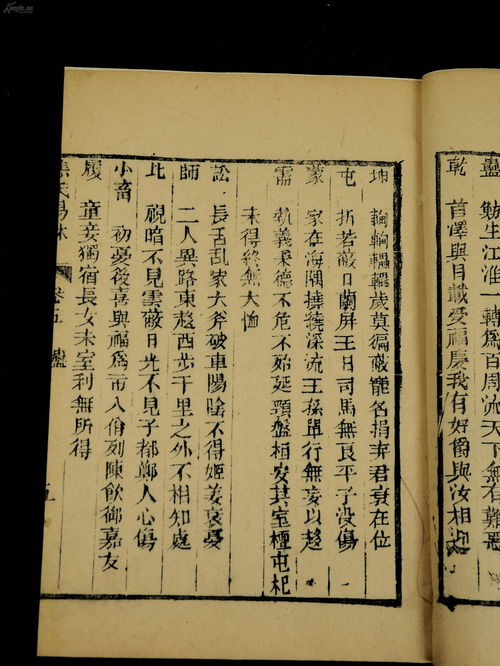 蠱 勉生江淮一轉爲百周流天下無有難惡
乾 首澤與目載愛福慶我有好爵與汝相迎
坤 輷輷轠轠歲莫偏蔽寵名捐弃君衰在位
屯 折若蔽日蘭屏王目司馬無良平子没傷
蒙 家在海隅撓繞深流王孫單行無妄以趍
需 執義秉德不危不殆延頸盤桓安其室檀屯杞
未得終無大恤
訟 長舌亂家大斧破車陽陰不得姬姜衰憂
師 二人異路東趍西步千里之外不相知處
比 視暗不見雲蔽日光不見子都鄭人心傷
小畜 初憂後喜與福爲市八佾列陳飲御嘉友
履 童妾獨宿長女未室利無所得
焦氏易林 卷五 蠱 五
Kongfz.cn